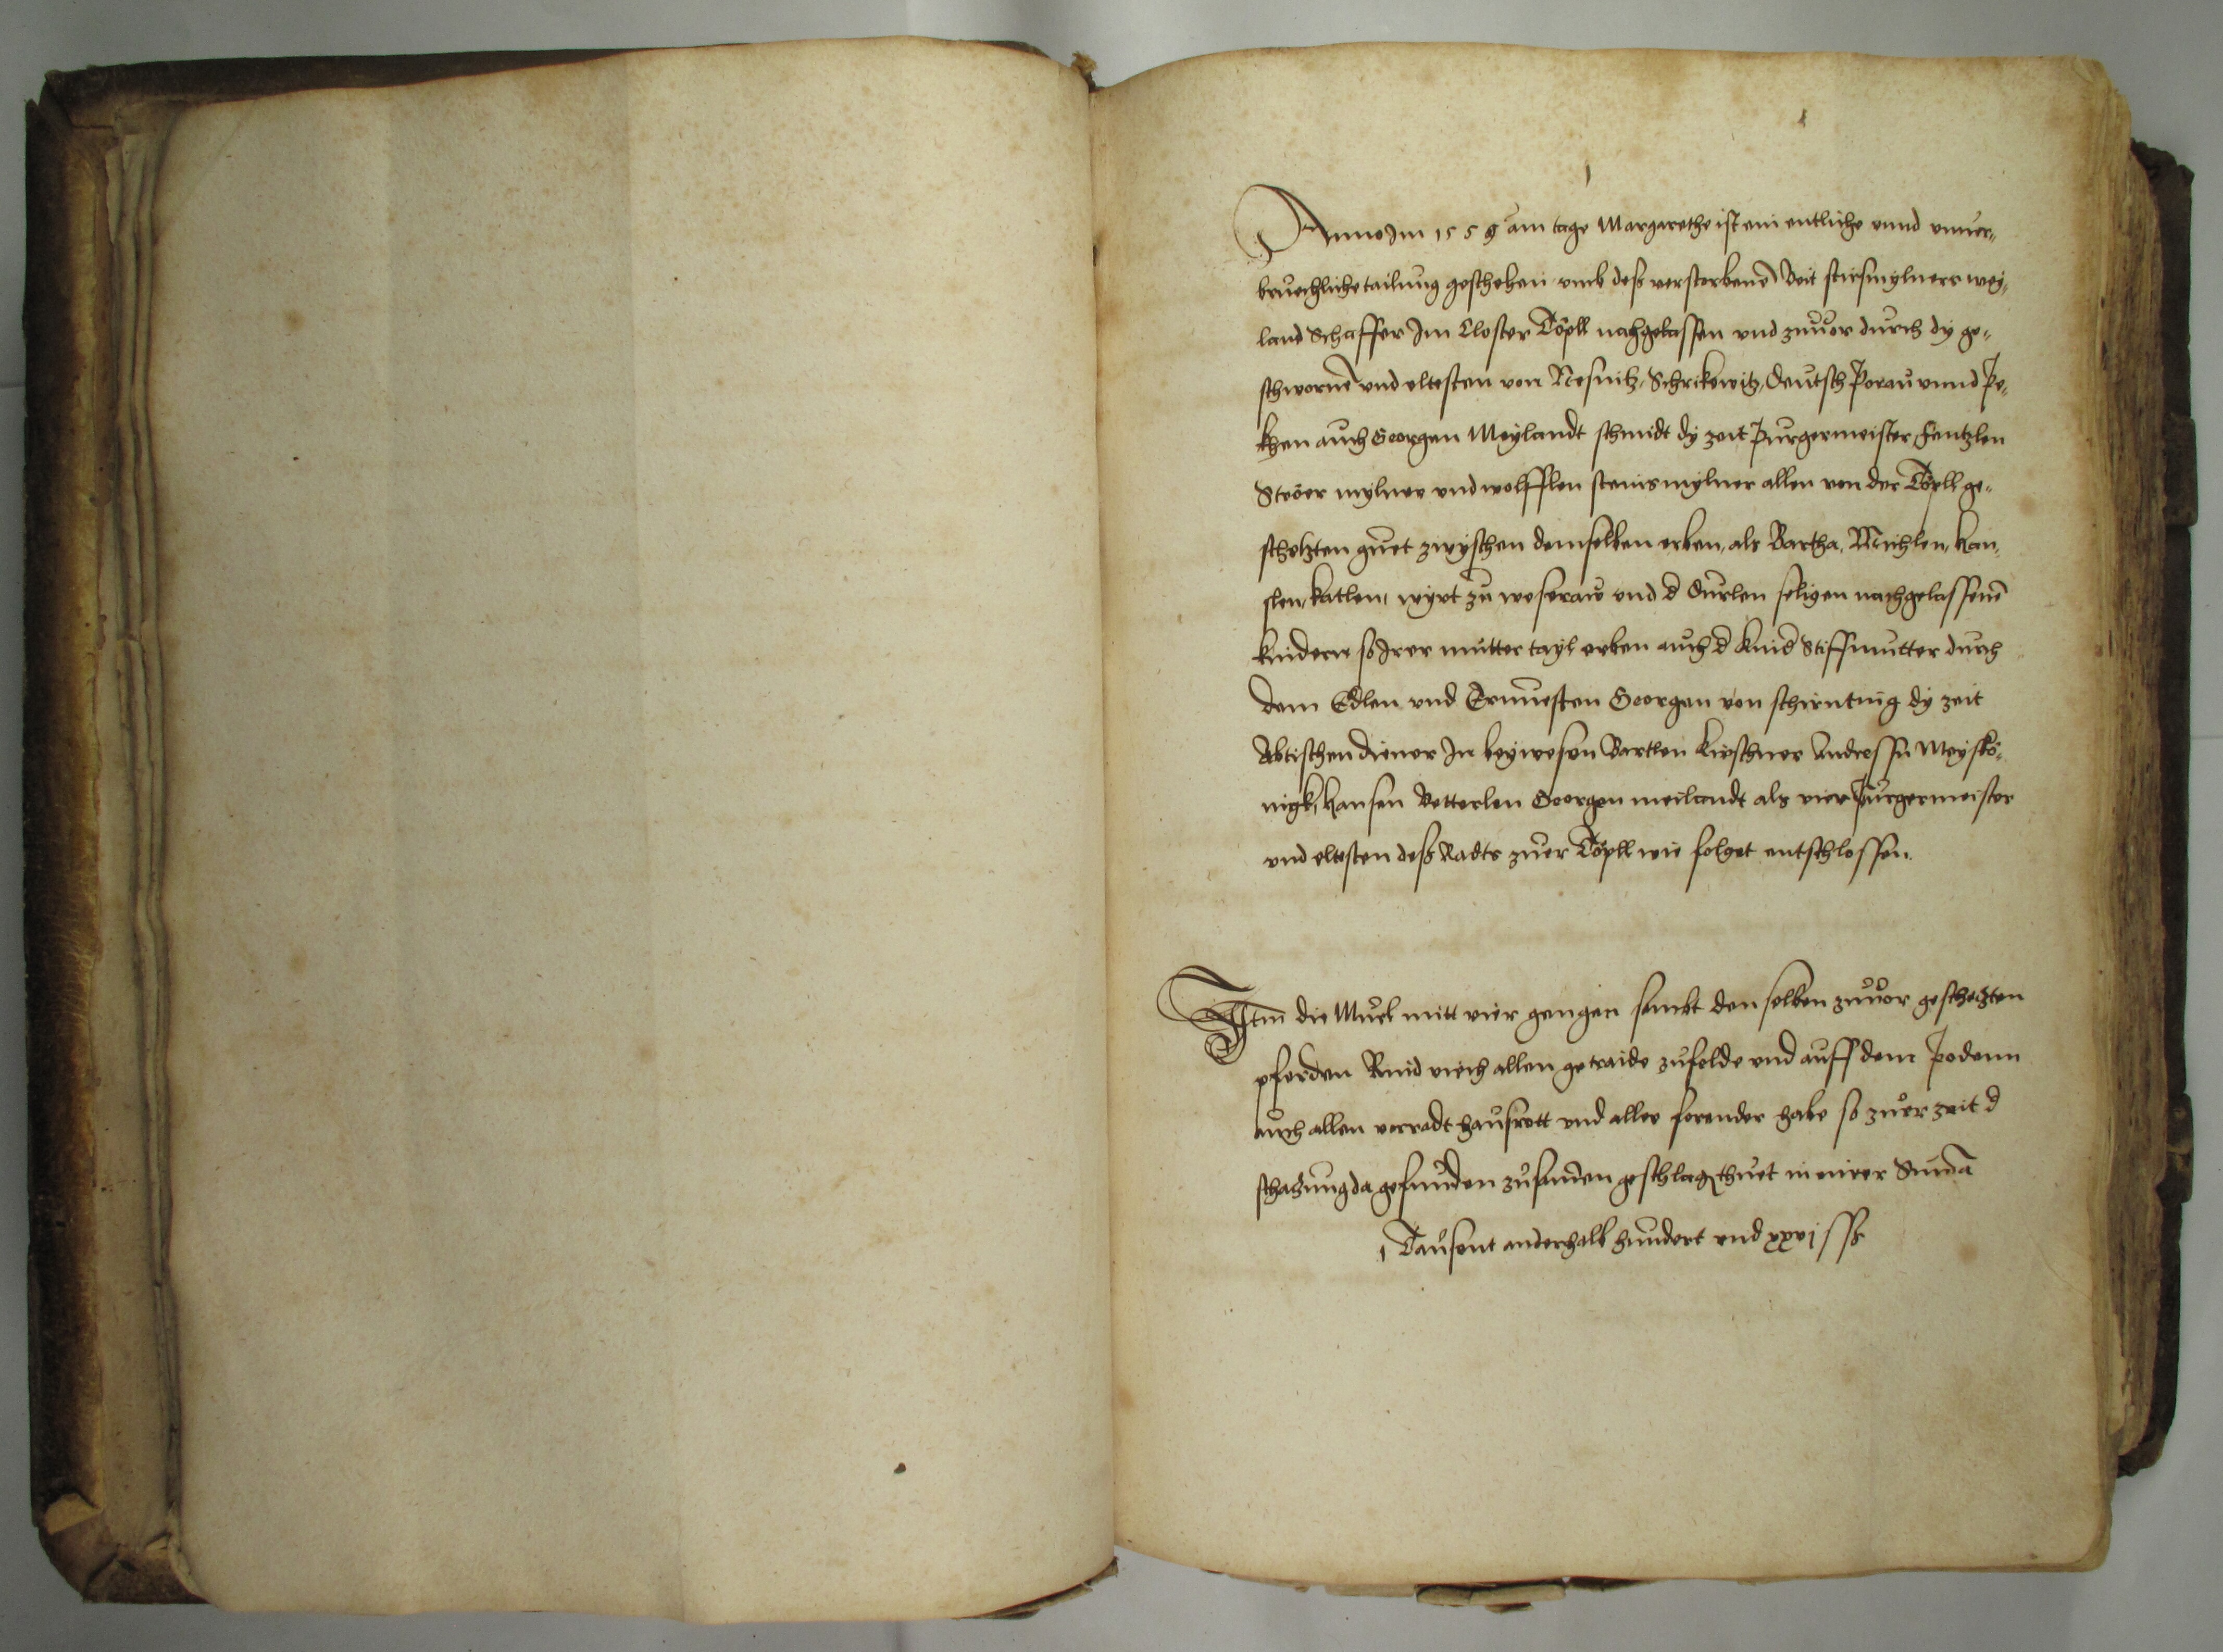 Anno Im 1559 am tage Margarethe ist ein entliche vnnd vnuer-
bruechliche tailung geschehen vmb deß verstorbenē Veit stirsmylners wey-
land Schaffer Im Closter Töpll nachgelassen vnd zuuor durch dy ge-
schwornē vnd eltesten von Rosnitz, Schrikowitz, deutsch Porau vnnd Pe-
khen auch Georgen Meylandt schmidt dy zeit Purgermeister, Fentzlen
Ströer mylner vnd wolfflen steinsmylner allen von der Töpll ge-
schetzten guet zwyschen demselben erben, als Bartha, Michlen, Han-
slen, Katlen, wyrt zu weseraw vnd d Durlen seligen nachgelassenē
kindern so Irer mutter tayl erben auch d Kind Stiffmutter durch
dem Edlen vnd Ernuesten Georgen von schirnting dy zeit
Abtischen diener In beywesen Bartlen Kirschner Andressn Meyskö-
nigk, Hansen Vetterlen Georgen meilandt als vier Purgermeister
vnd eltesten deß Radts zuer Töpll wie folget entschlossen.
Itm die Muel mitt vier gengen sambt den selben zuuor geschetzten
pferden Rind viech allen getraide zufelde vnd auff dem Podenn
auch allen vorradt hausrott vnd aller farender habe so zuer zeit d
schatzung da gefunden zusamen geschlag thuet in einer Suma
1 Tausent anderhalb hundert vnd xxvj ßß